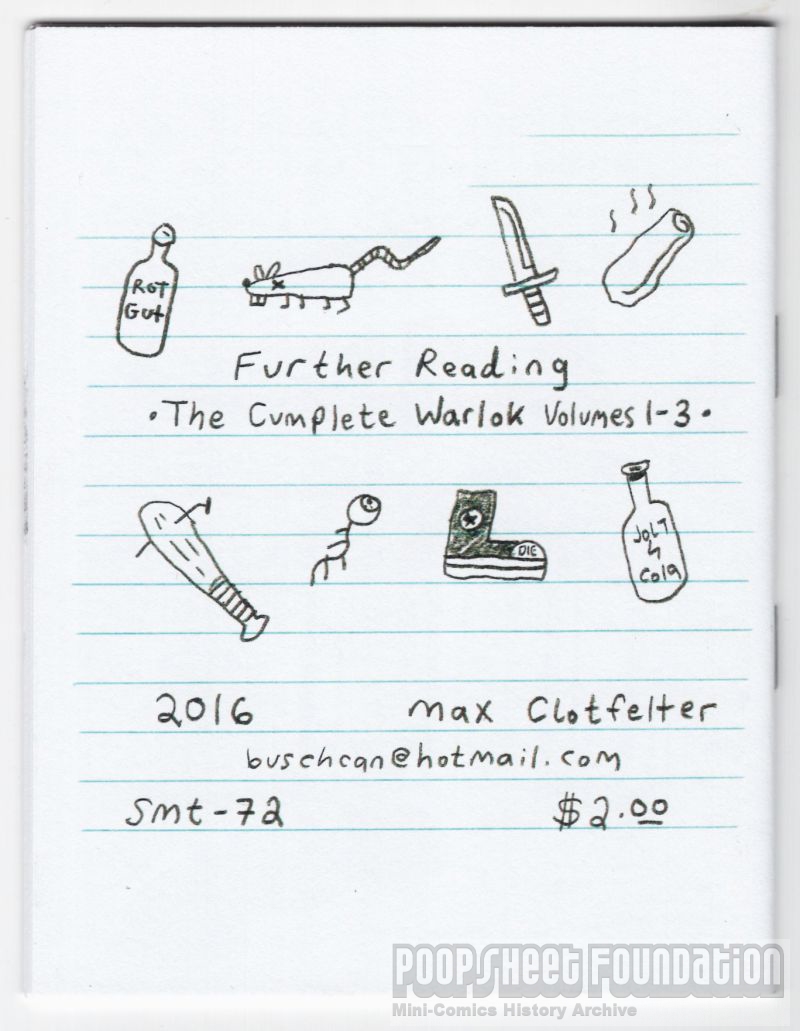 Rot
Gut
Further Reading
•The Cumplete Warlok Volumes 1-3•
DIE
JOLT
Cola
2016
Max Clotfelter
buschcan@hotmail.com
Smt-72
$2.00
POOPSHEET FOUNDATION
Mini-Comics History Archive